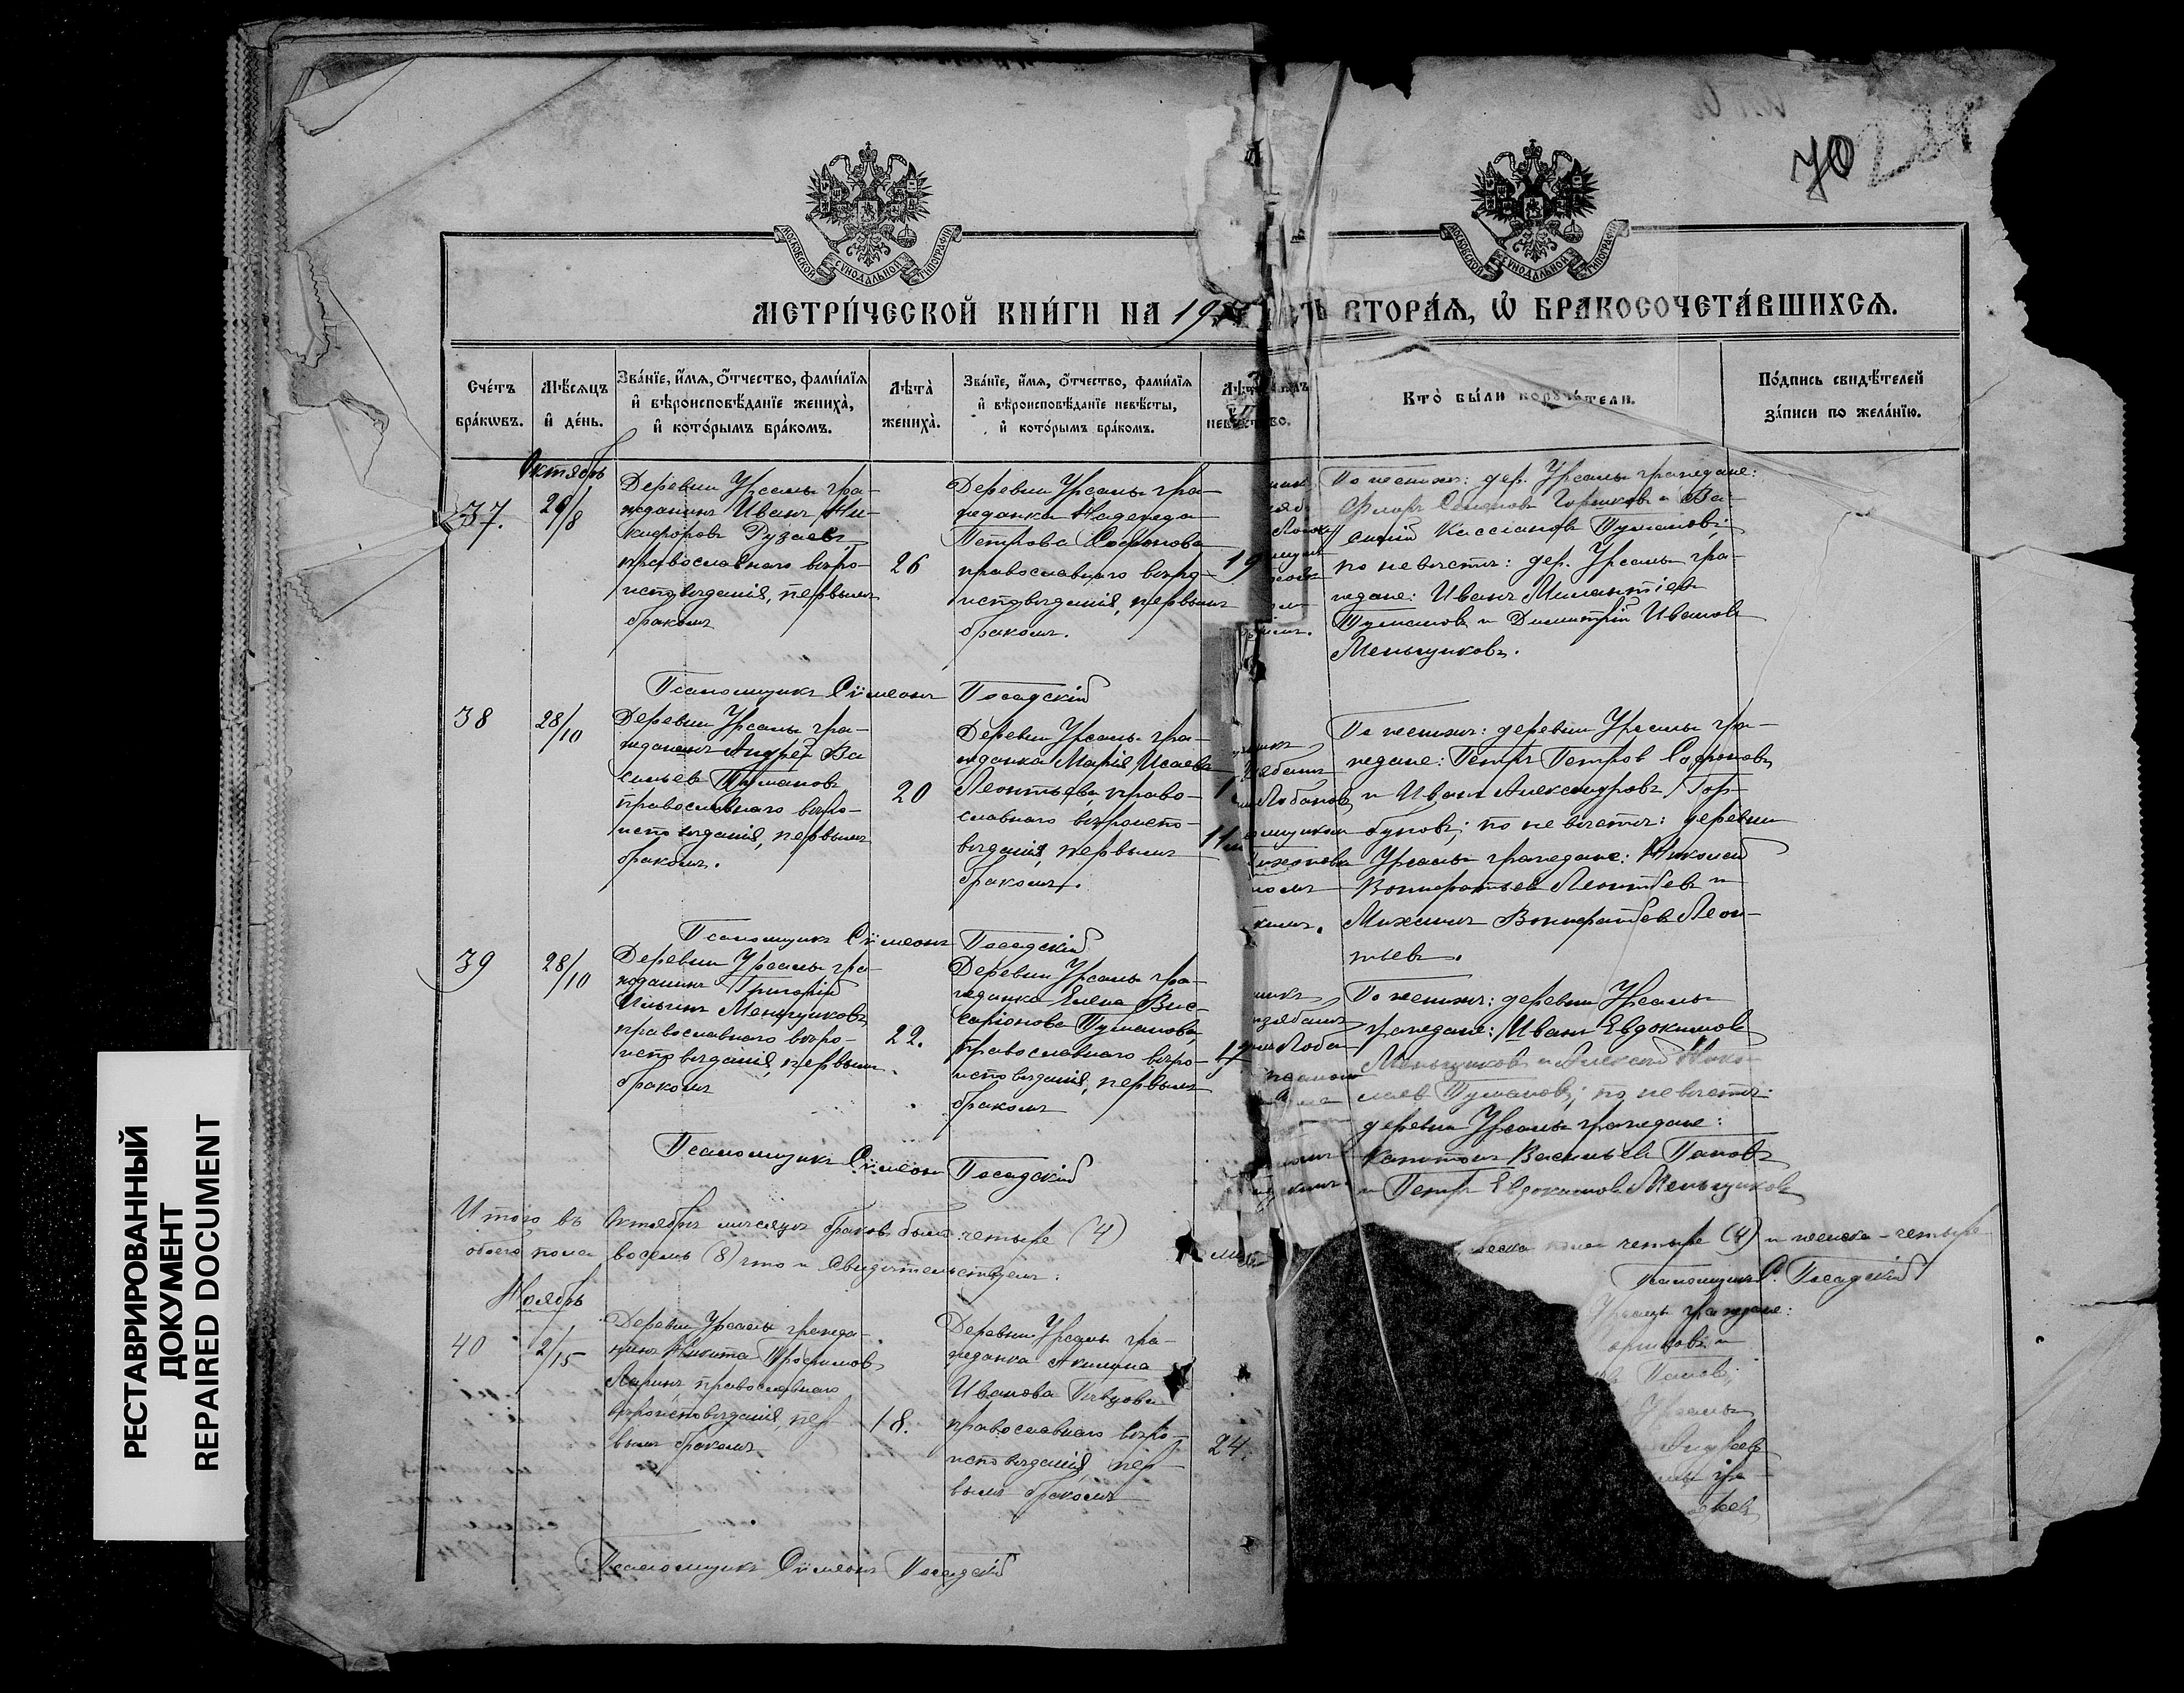 70
МОСКОВСКОЙ СѴНОДАЛЬНОЙ ТИПОГРАФІИ
МОСКОВСКОЙ СѴНОДАЛЬНОЙ ТИПОГРАФІИ
МЕТРИ́ЧЕСКОЙ КНИ́ГИ НА 19
ВТОРА́Ѧ, Ѽ БРАКОСОЧЕТА́ВШИХСѦ.
Сче́тъ бра́кѡвъ.
Мѣ́сѧцъ и҆ де́нь.
Зва́нїе, и҆́мѧ, ѻ҆́тчество, фами́лїѧ и҆ вѣроисповѣ́данїе жениха̀, и҆ кото́рымъ бра́комъ.
Лѣта̀ жениха̀.
Зва́нїе, и҆́мѧ, ѻ҆́тчество, фами́лїѧ и҆ вѣроисповѣ́данїе невѣ́сты, и҆ кото́рымъ бра́комъ.
Кто̀ бы́ли поручи́тели.
По́дпись свидѣ́телей за́писи по жела́нїю.
Октябрь
37.
26/8
Деревни Урсалы гра-
жданинъ Иванъ Ни-
кифоровъ Рузаевъ,
православнаго вѣро-
исповѣданія, первымъ
бракомъ
26
Деревни Урсалы гра-
жданка Надежда
Петрова Софонова
православнаго вѣро-
исповѣданія, первымъ
бракомъ.
19
По женихѣ: дер. Урсалы граждане:
Флоръ Семеновъ Горшковъ и Ва-
силій Кассіановъ Тумановъ;
по невѣстѣ: дер. Урсалы гра-
ждане: Иванъ Милантіевъ
Тумановъ и Димитрій Ивановъ
Меньщиковъ.
Псаломщикъ Сѵмеонъ Посадскій
38
28/10
Деревни Урсалы гра-
жданинъ Андрей Ва
сильевъ Тумановъ
православнаго вѣро-
исповѣданія, первымъ
бракомъ.
20
Деревни Урсалы гра-
жданка Марія Исаева
Леонтьева, право-
славнаго вѣроиспо-
вѣданія, первымъ
бракомъ.
По женихѣ: деревни Урсалы гра-
ждане: Петръ Петровъ Софоновъ
и Иванъ Александровъ Гор-
буновъ; по невѣстѣ: деревни
Урсалы граждане: Николай
Вонифатьевъ Леонтьевъ и
Михаилъ Вонифатьевъ Леон-
тьевъ.
Псаломщикъ Сѵмеонъ Посадскій
39
28/10
Деревни Урсалы гра-
жданинъ Григорій
Ильинъ Меньщиковъ
православнаго вѣро-
исповѣданія, первымъ
бракомъ
22.
Деревни Урсалы гра-
жданка Елена Вис-
саріонова Туманова,
православнаго вѣро-
исповѣданія, первымъ
бракомъ
По женихѣ: деревни Урсалы
граждане: Иванъ Евдокимовъ
Меньщиковъ и Алексѣй Нико-
лаевъ Тумановъ; по невѣстѣ:
деревни Урсалы граждане:
Капитонъ Васильевъ Пановъ
и Петръ Евдокимовъ Меньщиковъ
Псаломщикъ Сѵмеонъ Посадскій
Итого въ Октябрѣ мѣсяцѣ браковъ было четыре (4)
четыре (4) и женска - четыре
обоего пола восемь (8) что и свидѣтельствуемъ:
Псаломщикъ С. Посадскій
Ноябрь
40
2/15
Деревни Урсалы гражда-
нинъ Никита Трофимовъ
Ларинъ, православнаго
вѣроисповѣданія, пер-
вымъ бракомъ
18.
Деревни Урсалы гра-
жданка Акилина
Иванова Пѣвцова
православнаго вѣро-
исповѣданія, пер-
вымъ бракомъ
24.
Урсалы граждане:
Пановъ;
Урсалы
Андреевъ
Псаломщикъ Сѵмеонъ Посадскій
РЕСТАВРИРОВАННЫЙ
ДОКУМЕНТ
REPAIRED DOCUMENT